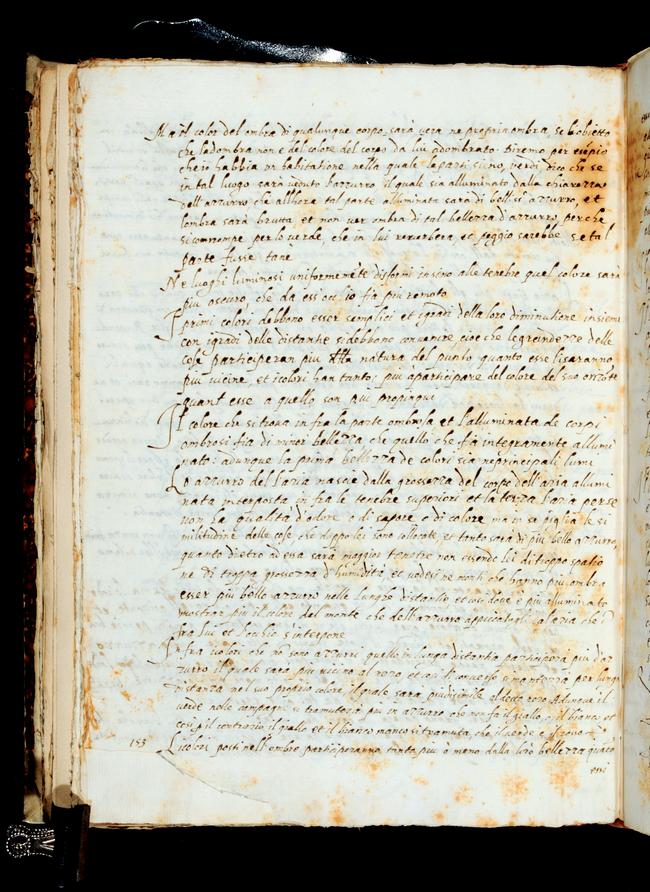 Ma il color del ombra di qualunque corpo sarà vera ne propria ombra, se l'obietto
che l'adombra non è del colore del corpo da lui adombrato. Diremo per esēpio
ch'io habbia un habitatione nella quale le pareti sieno verdi dico che se
in tal luogo sarà veduto l'azzurro il quale sia alluminato dalla chiarezza
dell'azzurro, che allhora tal parte alluminata sarà di belliss.º azzurro, et
l'ombra sarà brutta et non ver ombra di tal bellezza d'azzurro, perche
si corrompe per lo verde, che in lui reverbera, et peggio sarebbe se tal
parete fusse tane
Ne luoghi luminosi uniformemēte disformi insino alle tenebre quel colore sarà
più oscuro, che da esso occhio fia più remoto
I primi colori debbono esser semplici et i gradi della loro diminutione insieme
con i gradi delle distantie si debbono convenire cioe che le grandezze delle
cose participeran piu della natura del punto quanto esse li saranno
più vicine, et i colori han tanto più a participare del colore del suo orizōte
quant esse a quello son più propinque
Il colore che si trova in fra la parte ombrosa et l'alluminata de corpi
ombrosi fia di minor bellezza che quello che fia integramente allumi
nato: adunque la prima bellezza de colori sia ne principali lumi
Lo azzurro del l'aria nascie dalla grossezza del corpo dell'aria alumi
nata interposta in fra le tenebre superiori et la terra L'aria per se
non ha qualità d'odore o di sapore o di colore ma in se piglia le si
militudine delle cose che doppo lei sono collocate et tanto sarà di più bello azzurro,
quanto dietro ad essa sarà maggior tenebre non essendo lei di troppo spatio
ne di troppa grossezza d'humidità, et vedesi ne monti che hanno più ombra
esser più bello azzurro nelle lunghe distantie et così dove è più alluminato
mostrar più il colore del monte che dell'azzurro appiccatogli dal aria che in
fra lui et l'ochio s'interpone
Infra i colori che nō sono azzurri quello in lunga distantia participerà più d'az
zurro il quale sarà più vicino al nero et così di converso si manterrà per lunga
distanza nel suo proprio colore il quale sarà più dissimile al detto nero Adunque il
verde nelle campagne si tramuterà più in azzurro che non fa il giallo, o il bianco et
così p il contrario il giallo et il bianco manco si tramuta, che il verde e il rosso
153 Li colori posti nell'ombre participeranno tanto più o meno della loro bellezza quāto
essi